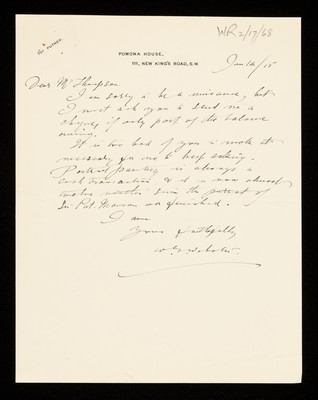 WR 2/17/68
POMONA HOUSE,
111, NEW KING'S ROAD, S.W.
Jan 14/15
Dear Mr Thompson
I am sorry to be a nuisance, but
I must ask you to send me a
cheque, if only part of the balance
owing.
It is too bad of you to make it
necessary for me to keep asking.
Portrait painting is always a
cash transaction & it is now almost
twelve months since the portrait of
Sir Pat. Manson was finished.
I am
Yours faithfully